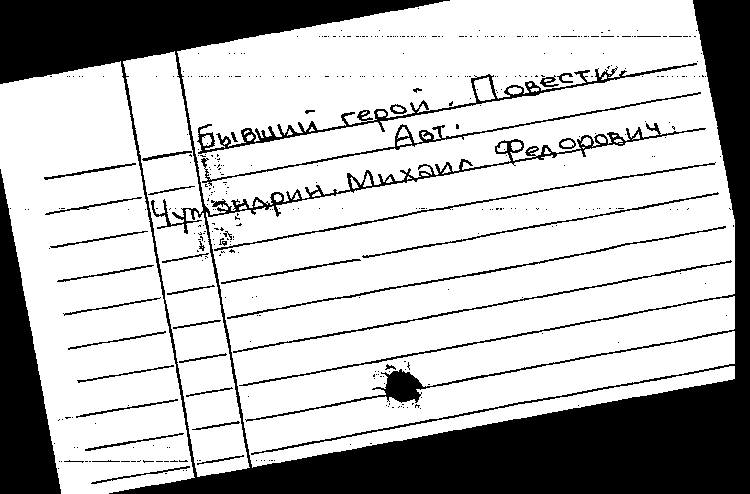 Бывший герой. Повести.
Авт.:
Чумандрин, Михаил Федорович.